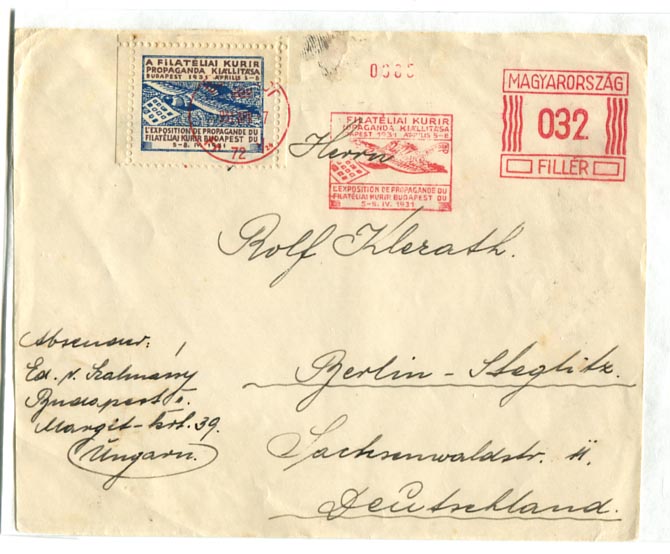 A FILATÉLIAI KURIR
PROPAGANDA KIÁLLÍTÁSA
BUDAPEST 1931 ÁPRILIS 5-6
L'EXPOSITION DE PROPAGANDE DU
FILATÉLIAI KURIR BUDAPEST DU
5-6. IV. 1931
72
0685
FILATÉLIAI KURIR
PROPAGANDA KIÁLLÍTÁSA
BUDAPEST 1931 ÁPRILIS 5-6.
L'EXPOSITION DE PROPAGANDE DU
FILATÉLIAI KURIR BUDAPEST DU
5-6. IV. 1931
MAGYARORSZÁG
032
FILLÉR
Herrn
Rolf Klerath.
Berlin - Steglitz.
Sachsenwaldstr. 11.
Deutschland.
Absender:
Ed. v. Szalmásy
Budapest I.
Margit-krt. 39.
Ungarn.